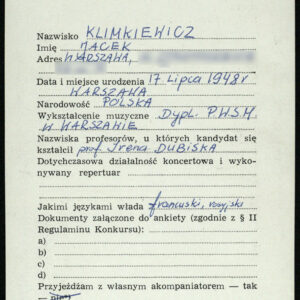 Nazwisko KLIMKIEWICZ
Imię JACEK
Adres WARSZAWA,
Data i miejsce urodzenia 17 lipca 1948 r
WARSZAWA
Narodowość POLSKA
Wykształcenie muzyczne Dypl. P.W.S.M.
W WARSZAWIE
Nazwiska profesorów, u których kandydat się
kształcił prof. Irena DUBISKA
Dotychczasowa działalność koncertowa i wyko-
nywany repertuar
Jakimi językami włada francuski, rosyjski
Dokumenty załączone do ankiety (zgodnie z § II
Regulaminu Konkursu):
a)
b)
c)
d)
Przyjeżdżam z własnym akompaniatorem — tak
— nie*)